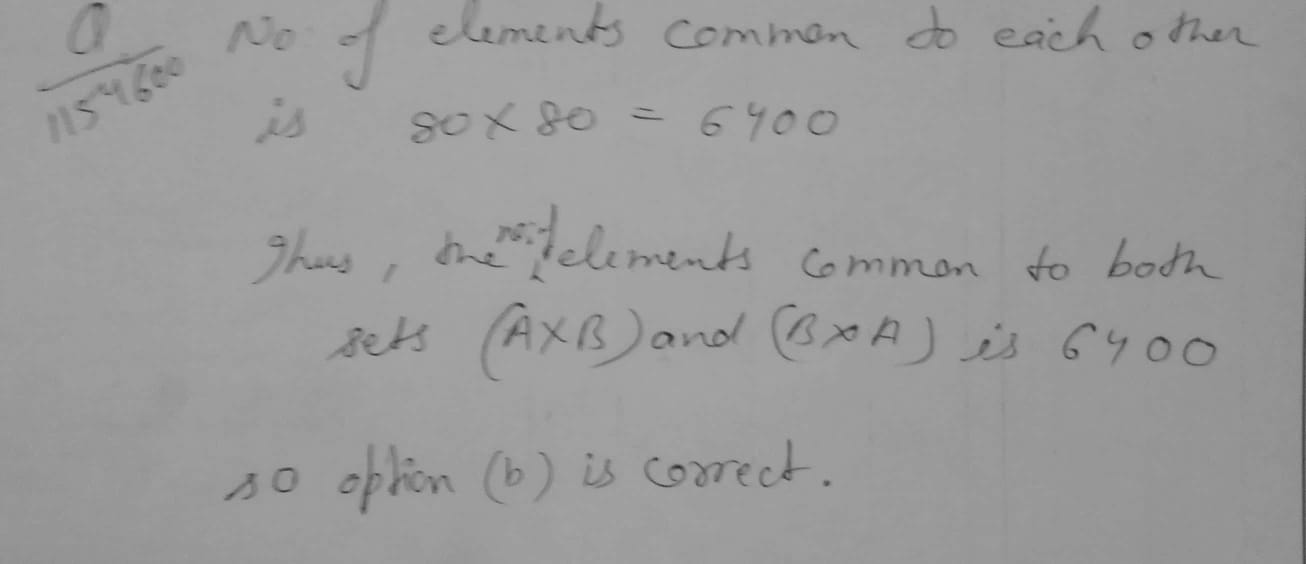 Q No. of elements common to each other
1154600
is 80 × 80 = 6400
Thus, the no. of elements common to both
sets (A×B) and (B×A) is 6400
so option (b) is correct.